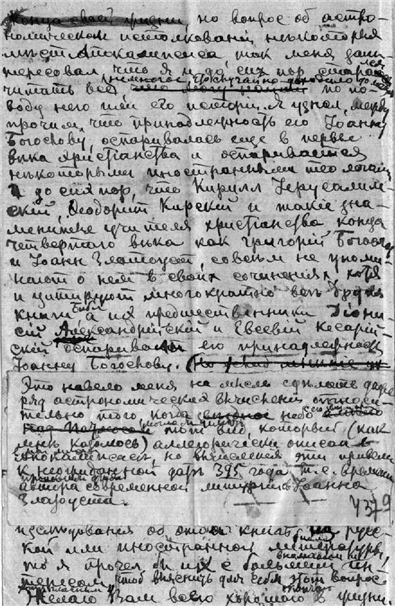 конца своей жизни но вопрос об астро-
номическом истолковании некоторых
мест Апокалипсиса так меня заин-
тересовал что я и до сих пор старался
читать всё, что по по-
воду него или его истории. Я узнал, между
прочим, что принадлежность его Иоанну
Богослову, оспаривалась еще в первые
века христианства и оспаривается
некоторыми иностранными теологами
и до сих пор, что Кирилл Иерусалим-
ский, Феодорит Кирский и такие зна-
менитые учителя христианства конца
четвертого века как Григорий Богослов
и Иоанн Златоуст совсем не упоми-
нают о нем в своих сочинениях, хотя
и цитируют многократно все другие
книги а их предшественники Диони-
сий Александрийский и Евсевий Кесарий-
ский оспаривают его принадлежность
Иоанну Богослову.
Это навело меня на мысль сделать даже
ряд астрономических вычислений относи-
тельно того, когда небо
имело тот вид, который (как
мне казалось) аллегорически описан в
Апокалипсисе, но вычисления эти привели
к неожиданной дате 395 года т.е. времени
современной Иоанна
Златоуста.
исследования об этой книге на рус-
ской или иностранной литературе,
то я прочел бы их с большим ин-
тересом, чтоб выяснить для себя этот вопрос.
Желаю Вам всего хорошего в жизни.